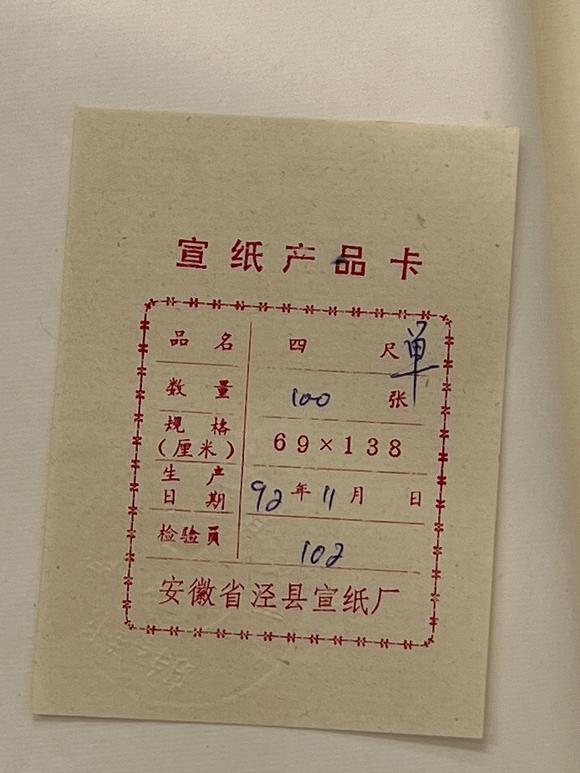 宣纸产品卡
品名 四尺单
数量 100张
规格(厘米) 69×138
生产日期 92年11月 日
检验员 102
安徽省泾县宣纸厂